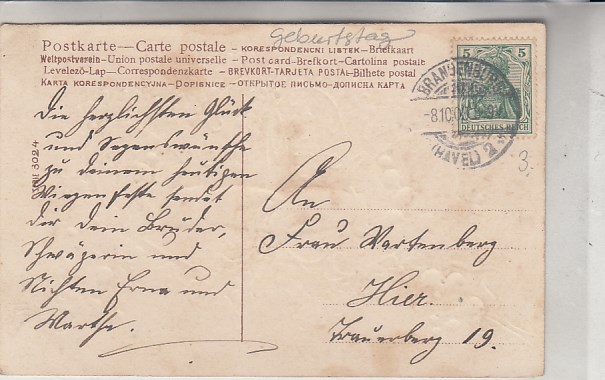 Geburtstag
Postkarte — Carte postale – KORESPONDENCNI LISTEK – Briefkaart
Weltpostverein – Union postale universelle – Post card – Brefkort – Cartolina postale
Levelező-Lap — Correspondenzkarte – BREVKORT – TARJETA POSTAL – Bilhete postal
KARTA KORESPONDENCYJNA – DOPISNICE – ОТКРЫТОЕ ПИСЬМО – ДОПИСНА КАРТА
5 5
DEUTSCHES REICH
BRANDENBURG
8.10.09
(HAVEL) 2
3.
3024
Die herzlichsten Glück
und Segenswünsche
zu deinem heutigen
Wiegenfeste sendet
dir dein Bruder,
Schwägerin und
Nichten Erna und
Marthe.
An
Frau Wartenberg
Hier.
Trauerberg 19.